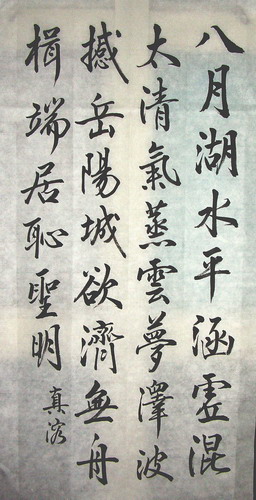 八月湖水平涵虛混
太清氣蒸雲夢澤波
撼岳陽城欲濟無舟
楫端居恥聖明
真浤